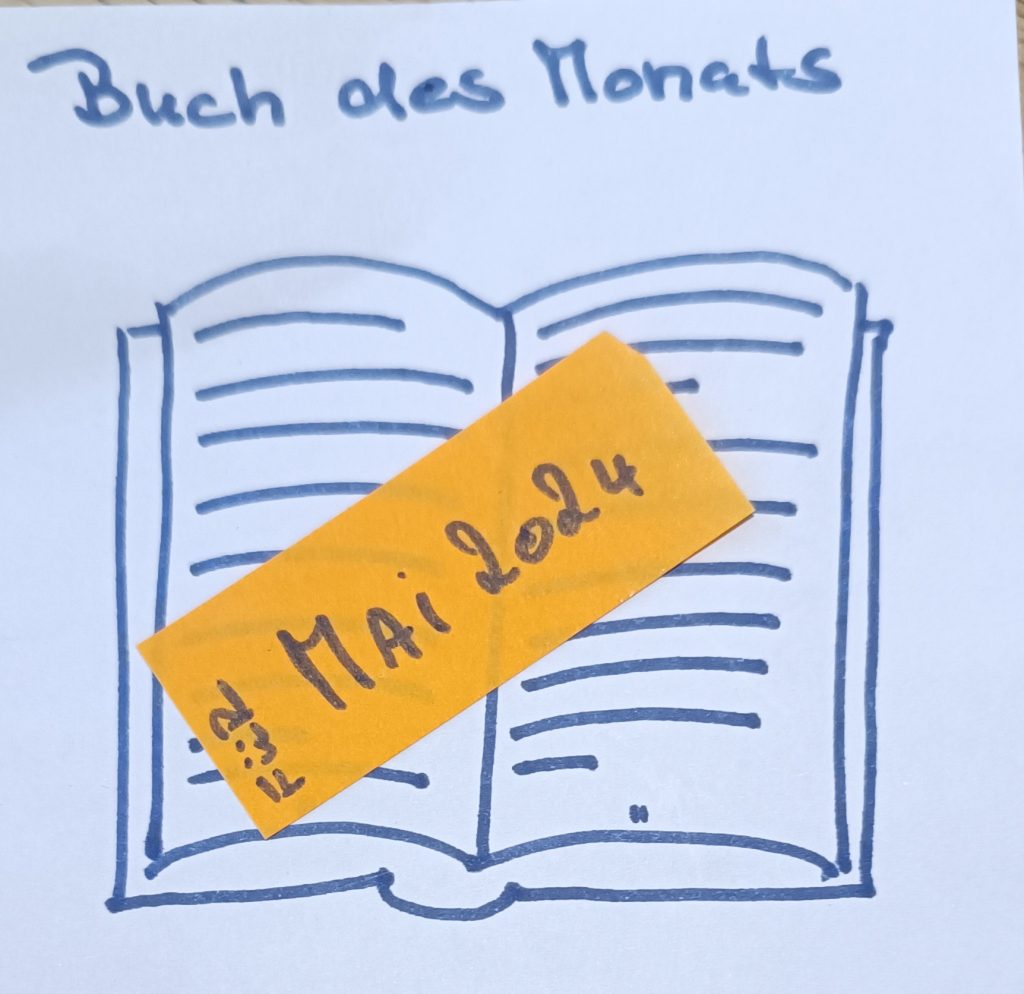 Buch des Monats
MAi 2024